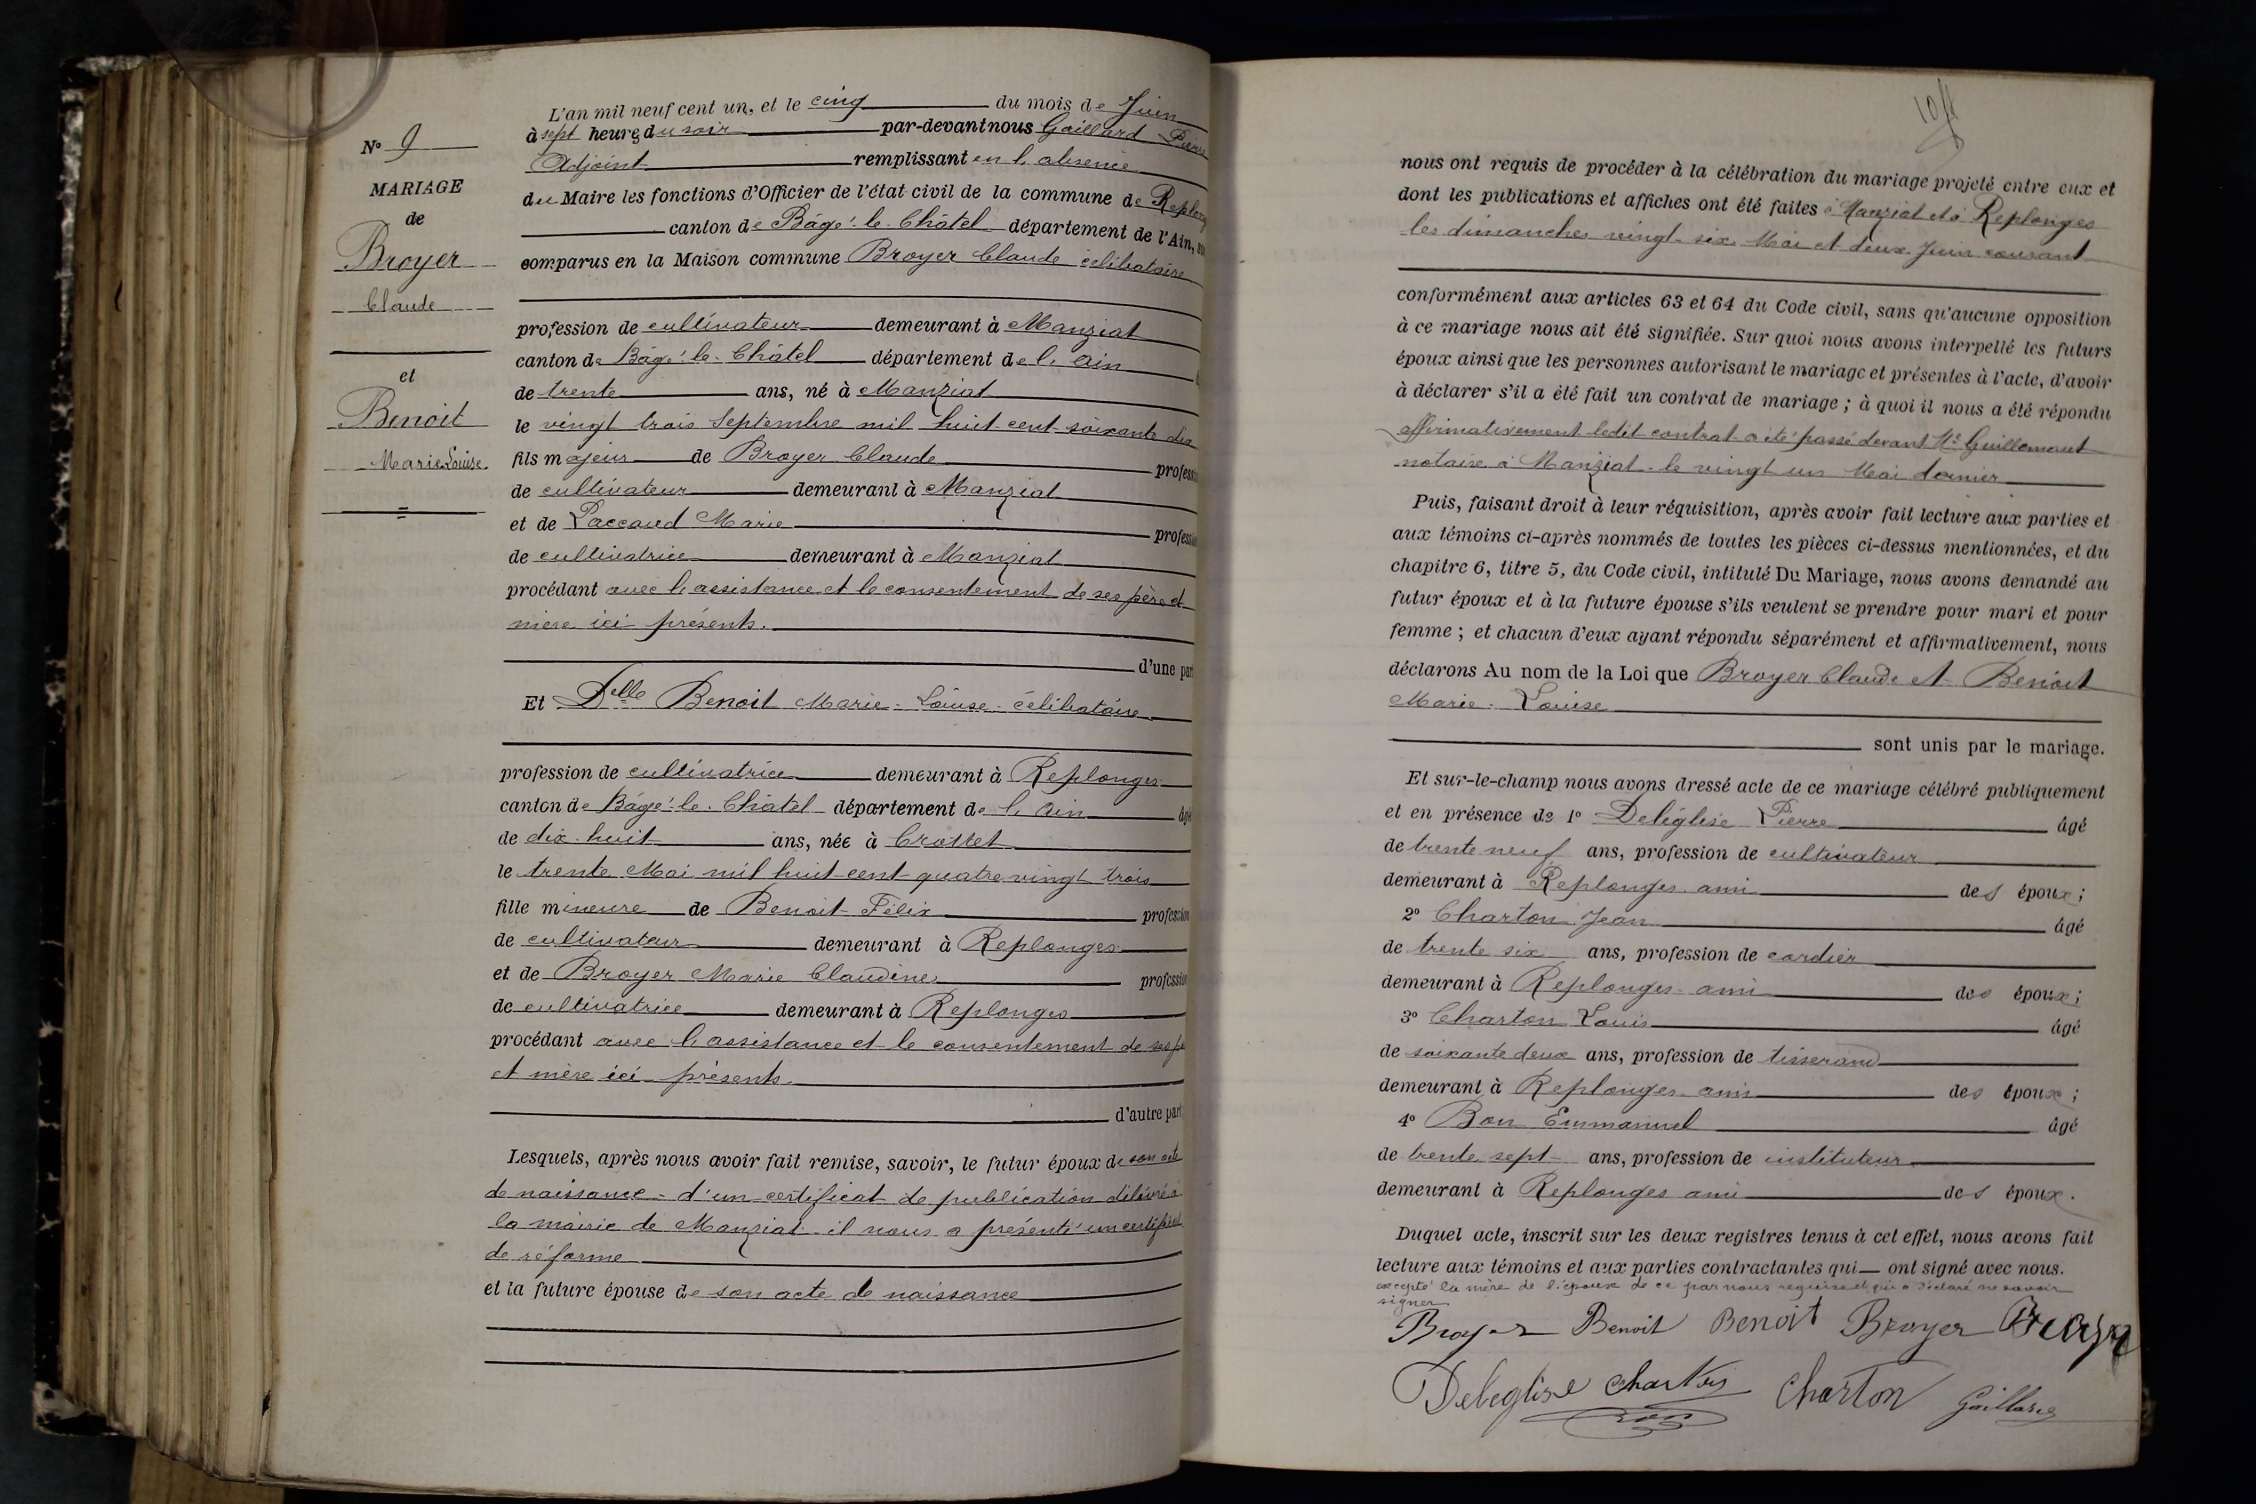 N° 9
MARIAGE
de
Broyer
Claude
et
Benoit
Marie Louise.
L'an mil neuf cent un, et le cinq du mois de Juin
à sept heures du soir par-devant nous Gaillard Pierre
Adjoint remplissant en l'absence
du Maire les fonctions d'Officier de l'état civil de la commune de Replonges
canton de Bâgé-le-Châtel département de l'Ain,
comparus en la Maison commune Broyer Claude célibataire
profession de cultivateur demeurant à Manziat
canton de Bâgé-le-Châtel département de l'Ain
de trente ans, né à Manziat
le vingt trois Septembre mil huit cent soixante dix
fils majeur de Broyer Claude profession
de cultivateur demeurant à Manziat
et de Paccaud Marie profession
de cultivatrice demeurant à Manziat
procédant avec l'assistance et le consentement de ses père et
mère ici présents.
d'une part
Et Delle Benoit Marie-Louise célibataire
profession de cultivatrice demeurant à Replonges
canton de Bâgé-le-Châtel département de l'Ain âgé
de dix-huit ans, née à Crottet
le trente Mai mil huit cent quatre vingt trois
fille mineure de Benoit Félix profession
de cultivateur demeurant à Replonges
et de Broyer Marie Claudine profession
de cultivatrice demeurant à Replonges
procédant avec l'assistance et le consentement de ses
et mère ici présents
d'autre part
Lesquels, après nous avoir fait remise, savoir, le futur époux de son acte
de naissance - d'un certificat de publication délivré à
la mairie de Manziat - il nous a présenté un certificat
de réforme
et la future épouse de son acte de naissance
nous ont requis de procéder à la célébration du mariage projeté entre eux et
dont les publications et affiches ont été faites à Manziat et à Replonges
les dimanches vingt-six Mai et deux Juin courant
conformément aux articles 63 et 64 du Code civil, sans qu'aucune opposition
à ce mariage nous ait été signifiée. Sur quoi nous avons interpellé les futurs
époux ainsi que les personnes autorisant le mariage et présentes à l'acte, d'avoir
à déclarer s'il a été fait un contrat de mariage ; à quoi il nous a été répondu
affirmativement ledit contrat a été passé devant Me Guillemaut
notaire à Manziat le vingt un Mai dernier
Puis, faisant droit à leur réquisition, après avoir fait lecture aux parties et
aux témoins ci-après nommés de toutes les pièces ci-dessus mentionnées, et du
chapitre 6, titre 5, du Code civil, intitulé Du Mariage, nous avons demandé au
futur époux et à la future épouse s'ils veulent se prendre pour mari et pour
femme ; et chacun d'eux ayant répondu séparément et affirmativement, nous
déclarons Au nom de la Loi que Broyer Claude et Benoit
Marie-Louise
sont unis par le mariage.
Et sur-le-champ nous avons dressé acte de ce mariage célébré publiquement
et en présence de 1° Deléglise Pierre âgé
de trente neuf ans, profession de cultivateur
demeurant à Replonges ami des époux ;
2° Charton Jean âgé
de trente six ans, profession de cordier
demeurant à Replonges ami des époux ;
3° Charton Louis âgé
de soixante deux ans, profession de tisserand
demeurant à Replonges ami des époux ;
4° Bon Emmanuel âgé
de trente sept ans, profession de instituteur
demeurant à Replonges ami des époux.
Duquel acte, inscrit sur les deux registres tenus à cet effet, nous avons fait
lecture aux témoins et aux parties contractantes qui ont signé avec nous.
excepté la mère de l'époux de ce par nous requise et qui a déclaré ne savoir
signer
Broyer Benoit Benoit Broyer Broyer
Deleglise Charton Charton Gaillard